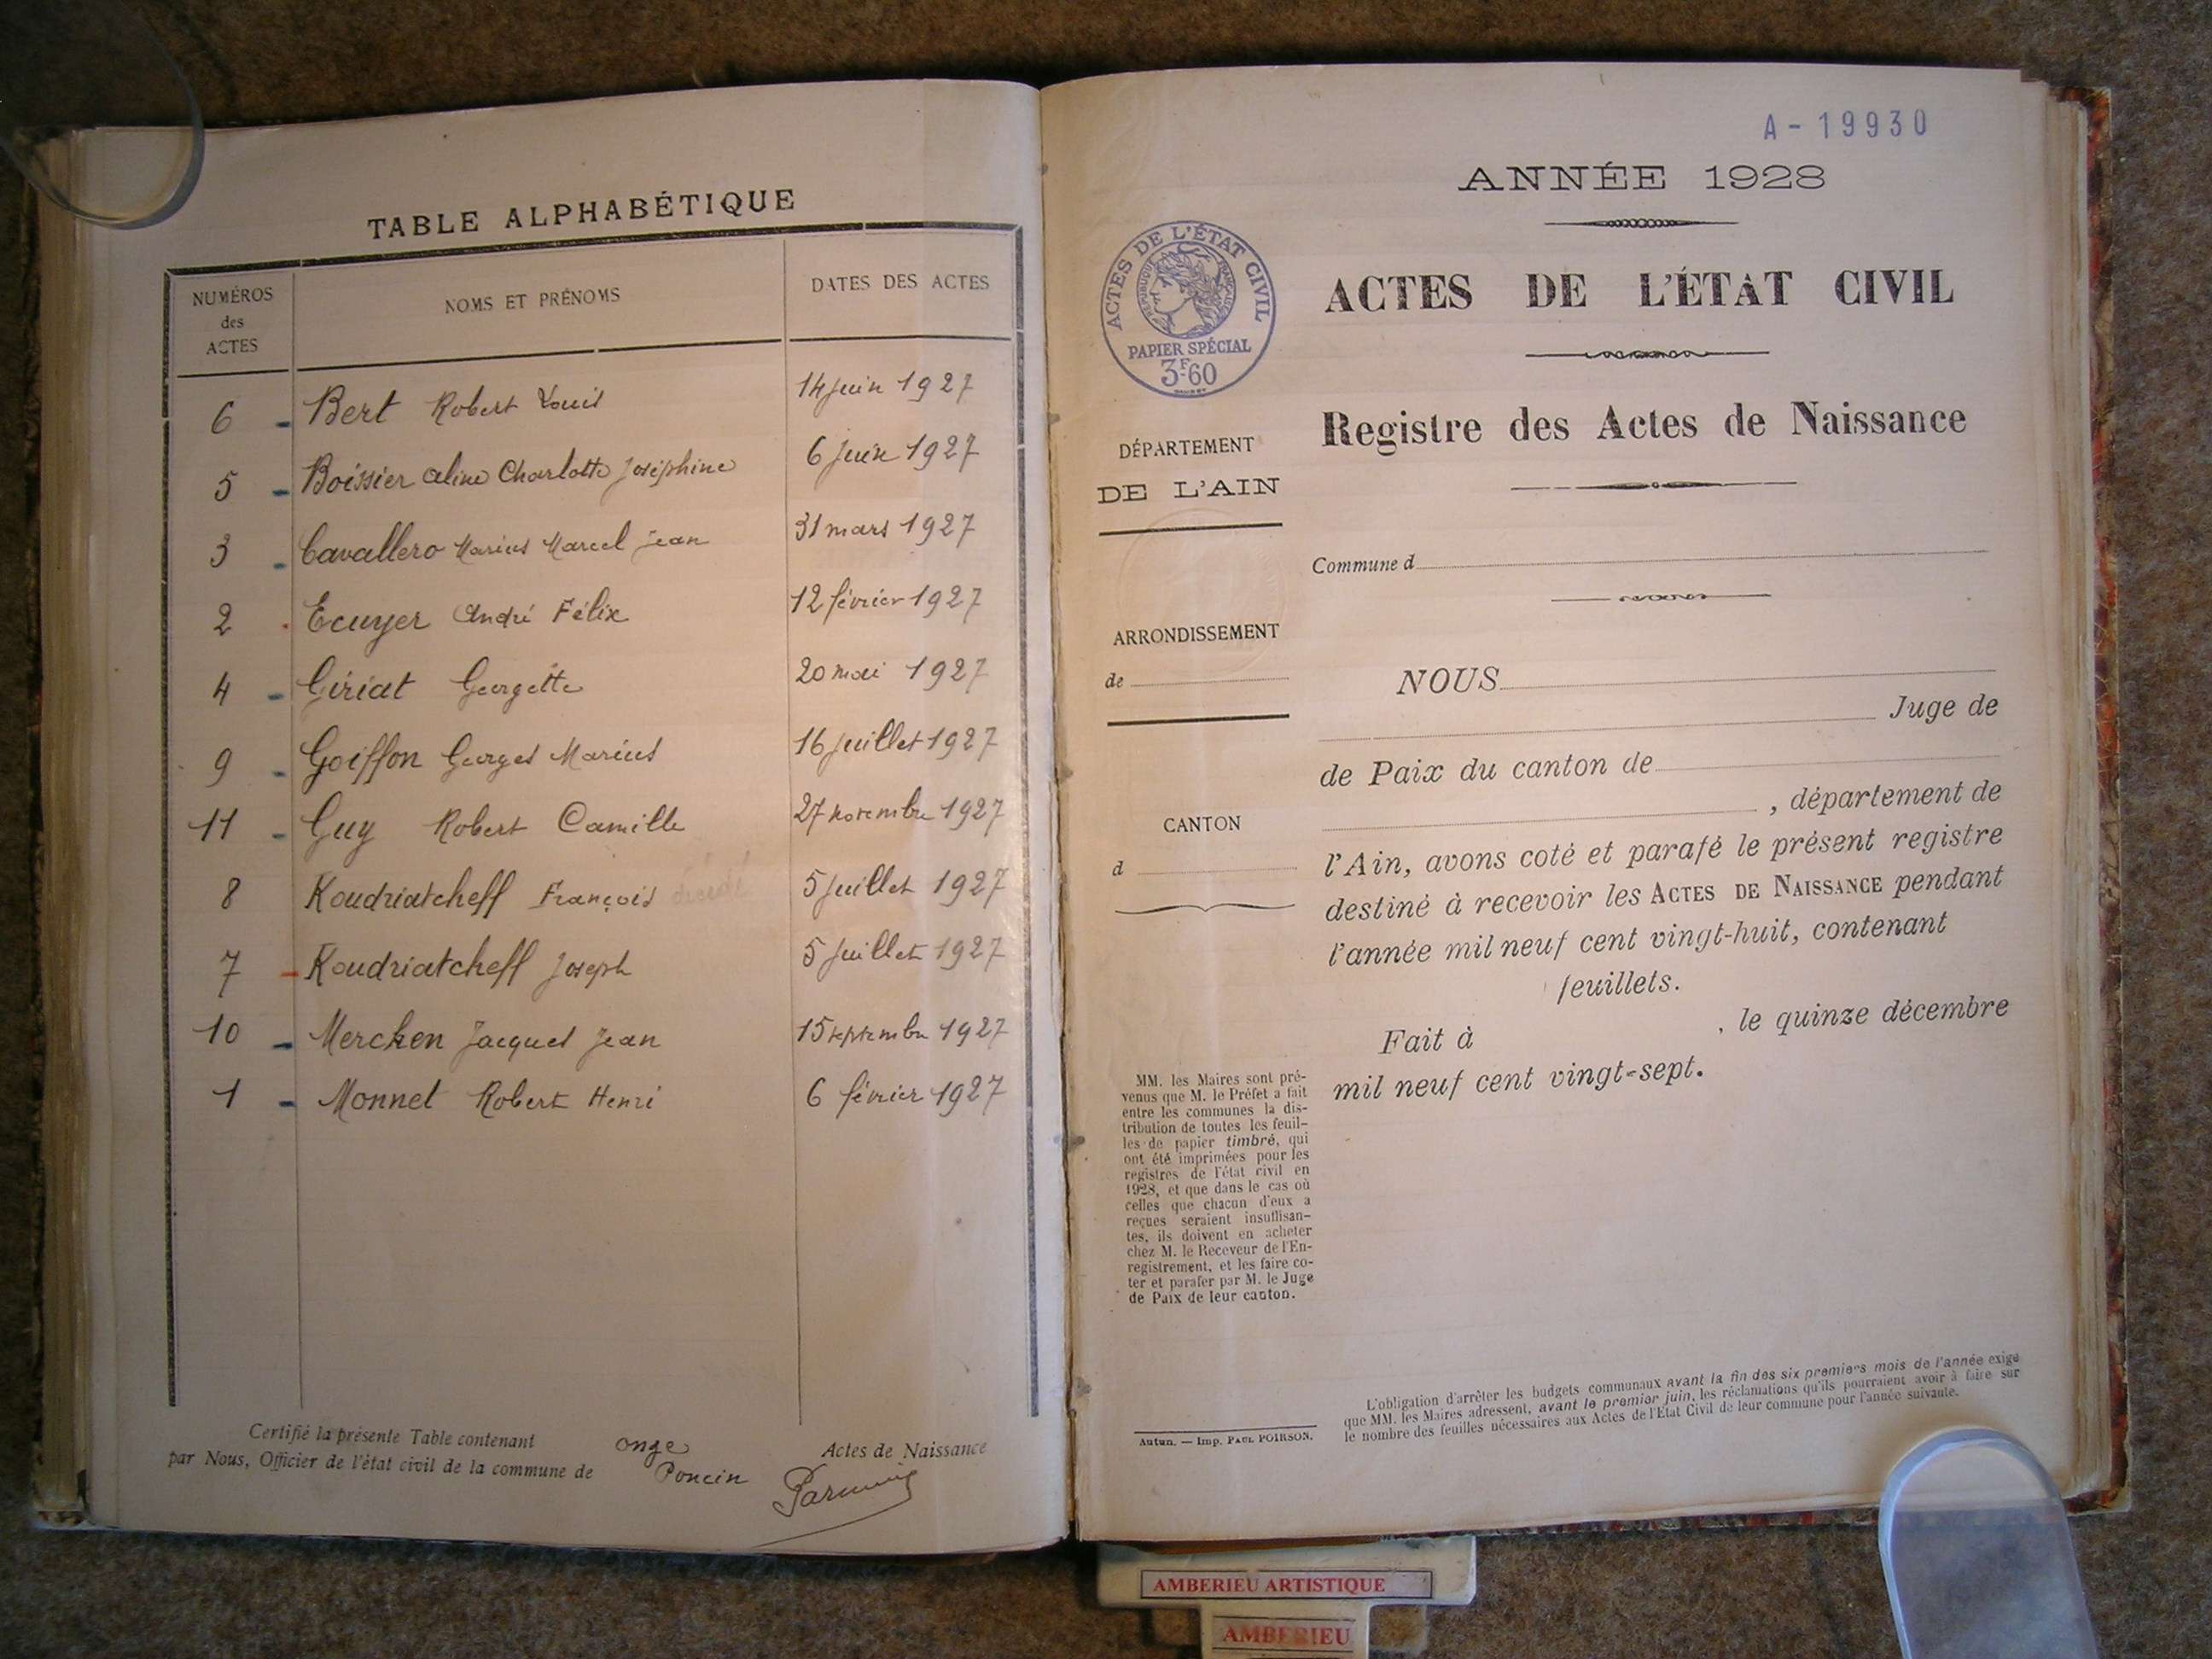 TABLE ALPHABÉTIQUE
NUMÉROS
des
ACTES
NOMS ET PRÉNOMS
DATES DES ACTES
6 - Bert Robert Louis 14 juin 1927
5 - Boissier Aline Charlotte Joséphine 6 juin 1927
3 - Cavallero Marius Marcel Jean 31 mars 1927
2 - Ecuyer André Félix 12 février 1927
4 - Giriat Georgette 20 mai 1927
9 - Goiffon Georges Marius 16 juillet 1927
11 - Guy Robert Camille 27 novembre 1927
8 Koudriatcheff François 5 juillet 1927
7 - Koudriatcheff Joseph 5 juillet 1927
10 - Merchen Jacques Jean 15 septembre 1927
1 - Monnet Robert Henri 6 février 1927
Certifié la présente Table contenant onze Actes de Naissance
par Nous, Officier de l'état civil de la commune de Poncin
A-19930
ANNÉE 1928
ACTES DE L'ÉTAT CIVIL
RÉPUBLIQUE FRANÇAISE
PAPIER SPÉCIAL
3F60
ACTES DE L'ÉTAT CIVIL
Registre des Actes de Naissance
DÉPARTEMENT
DE L'AIN
Commune d
ARRONDISSEMENT
de
CANTON
d
NOUS
Juge de
de Paix du canton de
, département de
l'Ain, avons coté et parafé le présent registre
destiné à recevoir les ACTES DE NAISSANCE pendant
l'année mil neuf cent vingt-huit, contenant
feuillets.
Fait à , le quinze décembre
mil neuf cent vingt-sept.
MM. les Maires sont pré-
venus que M. le Préfet a fait
entre les communes la dis-
tribution de toutes les feuil-
les de papier timbré, qui
ont été imprimées pour les
registres de l'état civil en
1928, et que dans le cas où
celles que chacun d'eux a
reçues seraient insuffisan-
tes, ils doivent en acheter
chez M. le Receveur de l'En-
registrement, et les faire co-
ter et parafer par M. le Juge
de Paix de leur canton.
Autun. — Imp. PAUL POIRSON.
L'obligation d'arrêter les budgets communaux avant la fin des six premiers mois de l'année exige
que MM. les Maires adressent, avant le premier juin, les réclamations qu'ils pourraient avoir à faire sur
le nombre des feuilles nécessaires aux Actes de l'État Civil de leur commune pour l'année suivante.
AMBERIEU ARTISTIQUE
AMBERIEU